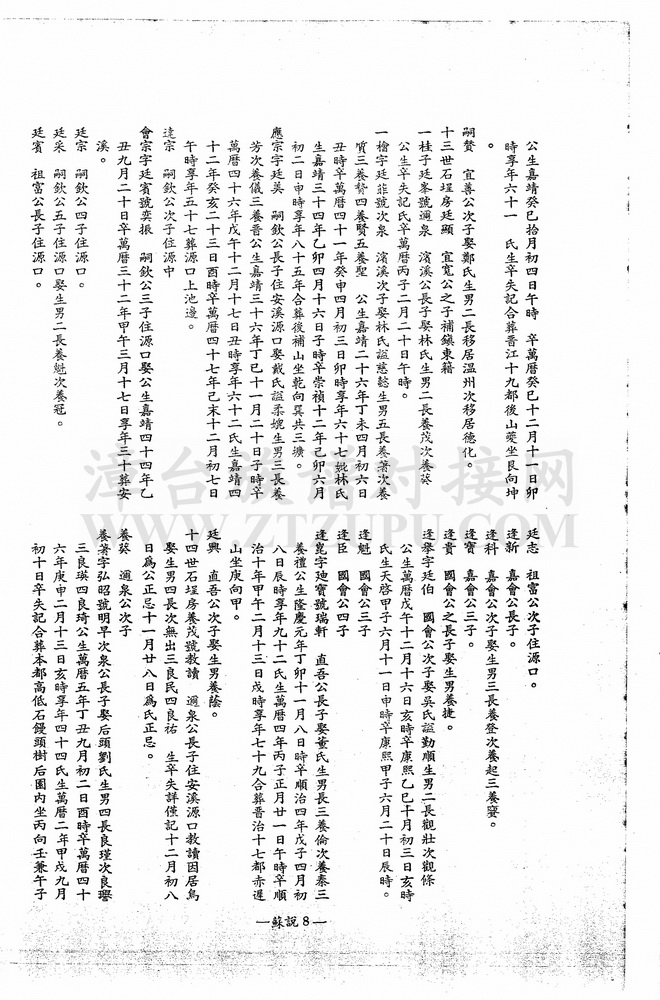 公生嘉靖癸巳拾月初四日午時　卒萬曆癸巳十二月十一日卯
時享年六十一　氏生卒失記合葬晋江十九都後山葵坐艮向坤
。
嗣贅　宜善公次子娶鄭氏生男二長移居溫州次移居德化。
十三世石埕房廷顯　宜寬公之子補鎮東籍
一桂子廷峯號邇泉　濱溪公長子娶林氏生男二長養茂次養葵
公生卒失記氏卒萬曆丙子二月二十日午時。
一檜字廷菲號次泉　濱溪次子娶林氏諡慈懿生男五長養著次養
質三養贅四養賢五養聖　公生嘉靖二十六年丁未四月初六日
丑時卒萬曆四十一年癸申四月初三日卯時享年六十七妣林氏
生嘉靖三十四年乙卯四月十六日子時卒崇禎十二年己卯六月
初二日申時享年八十五年合葬後補山坐乾向巽共三壙。
應宗字廷美　嗣欽公長子住安溪源口娶戴氏諡柔婉生男三長養
芳次養儀三養晋公生嘉靖三十六年丁巳十一月二十日子時卒
萬曆四十六年戊午十二月十七日丑時享年六十二氏生嘉靖四
十二年癸亥二十三日酉時卒萬曆四十七年己未十二月初七日
午時享年五十七葬源口上池邊。
達宗　嗣欽公次子住源中
會宗字廷賓號奕振　嗣欽公三子住源口娶公生嘉靖四十四年乙
丑九月二十日卒萬曆三十二年甲午三月十七日享年三十葬安
溪。
廷宗　嗣欽公四子住源口。
廷采　嗣欽公五子住源口娶生男二長養魁次養冠。
廷賓　祖富公長子住源口。
廷志　祖富公次子住源口。
逢新　嘉會公長子。
逢科　嘉會公次子娶生男三長養登次養起三養夔。
逢寶　嘉會公三子。
逢貴　國會公之長子娶生男養捷。
逢舉字廷伯　國會公次子娶吳氏諡勤順生男二長觀壯次觀條
公生萬曆戊午十二月十六日亥時卒康熙乙巳十月初三日亥時
氏生天啓甲子六月十一日申時卒康熙甲子六月二十日辰時。
逢魁　國會公三子
逢臣　國會公四子
逢崑字廸寶號瑞軒　直吾公長子娶董氏生男長三養倫次養泰三
養禮公生隆慶元年丁卯十一月八日時卒順治四年戊子四月初
八日辰時享年九十二氏生萬曆四年丙子正月廿一日午時卒順
治十年甲午二月十三日戌時享年七十九合葬晋治十七都赤遲
山坐庚向甲。
廷興　直吾公次子娶生男養蔭。
十四世石埕房養茂號教讀　邇泉公長子住安溪源口教讀因居烏
娶生男四長次無出三良民四良祐　生卒失詳僅記十二月初八
日爲公正忌十一月廿八日為氏正忌。
養葵　邇泉公次子
養著字弘昭號明早次泉公長子娶后頭劉氏生男四長良瑾次良瓔
三良瑛四良琦公生萬曆五年丁丑九月初二日酉時卒萬曆四十
六年庚申二月十三日亥時享年四十四氏生萬曆二年甲戌九月
初十日卒失記合葬本都高低石饅頭樹后園內坐丙向壬兼午子
—蘇說8—
漳台族譜对接网
WWW.ZTZUPU.COM